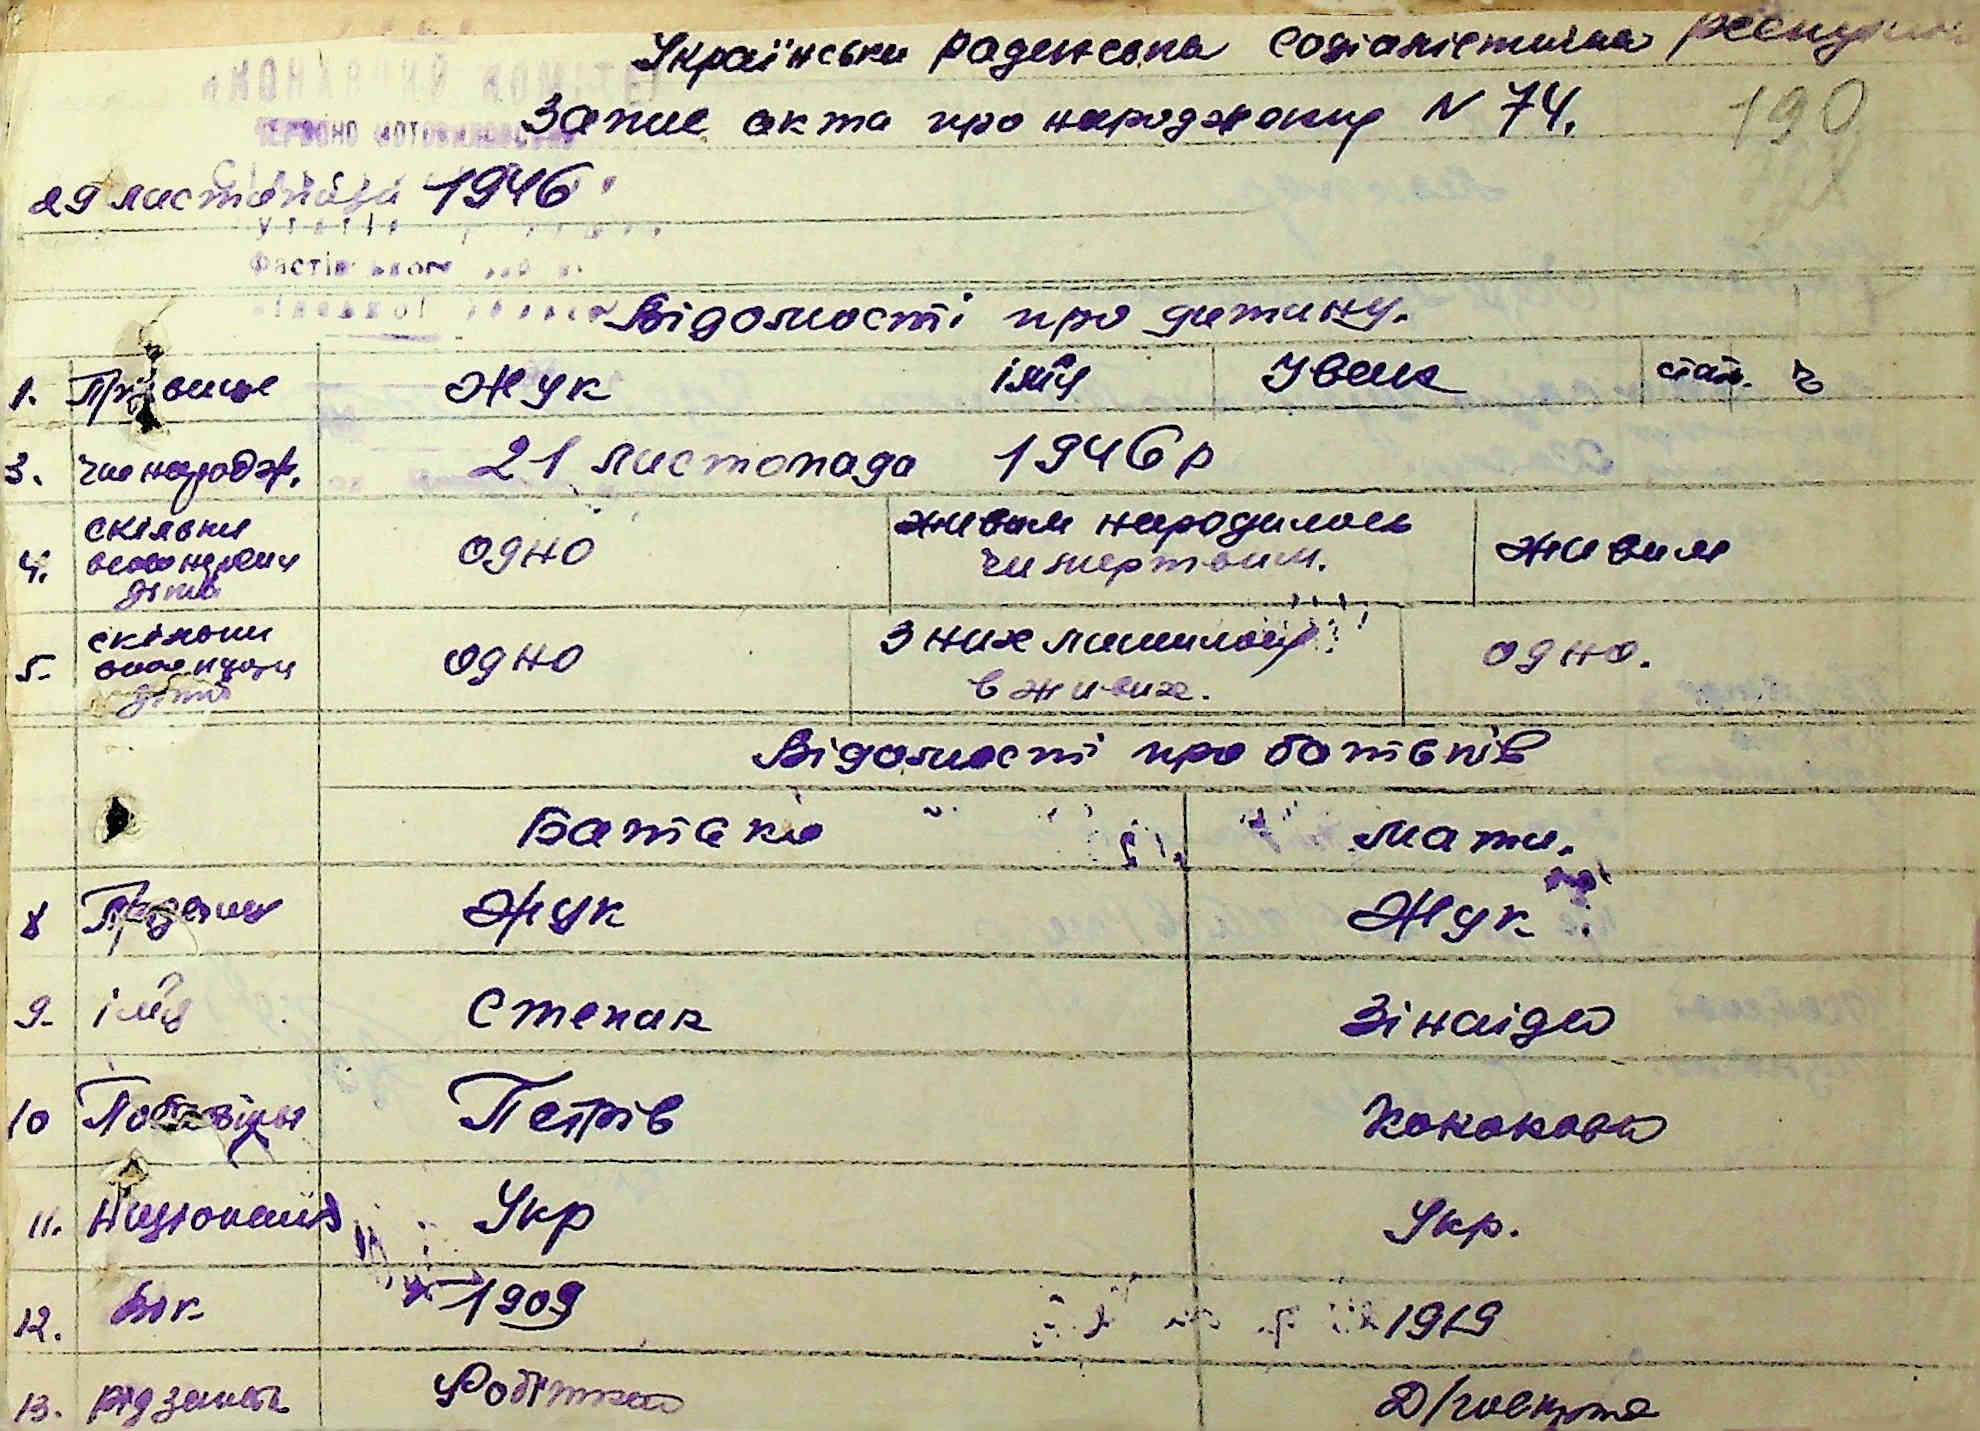 Українська радянська соціалістична республіка
Запис акта про народження N 74.
190
29 листопада 1946
Фастівського
Відомості про дитину.
1. Прізвище Жук ім'я Іван стать ч
3. Час народж. 21 листопада 1946 р
4. скільки всього народж дітей одно живим народилось чи мертвим. живим
5. скільки всього народж дітей одно З них лишилось в живих. одно.
Відомості про батьків
Батько Мати.
8 Прізвище Жук Жук
9. ім'я Степан Зінаїда
10 Побатькові Петрів Кононовна
11. Національ Укр Укр.
12. Вік 1909 1919
13. рід занять Робітник Д/господарка